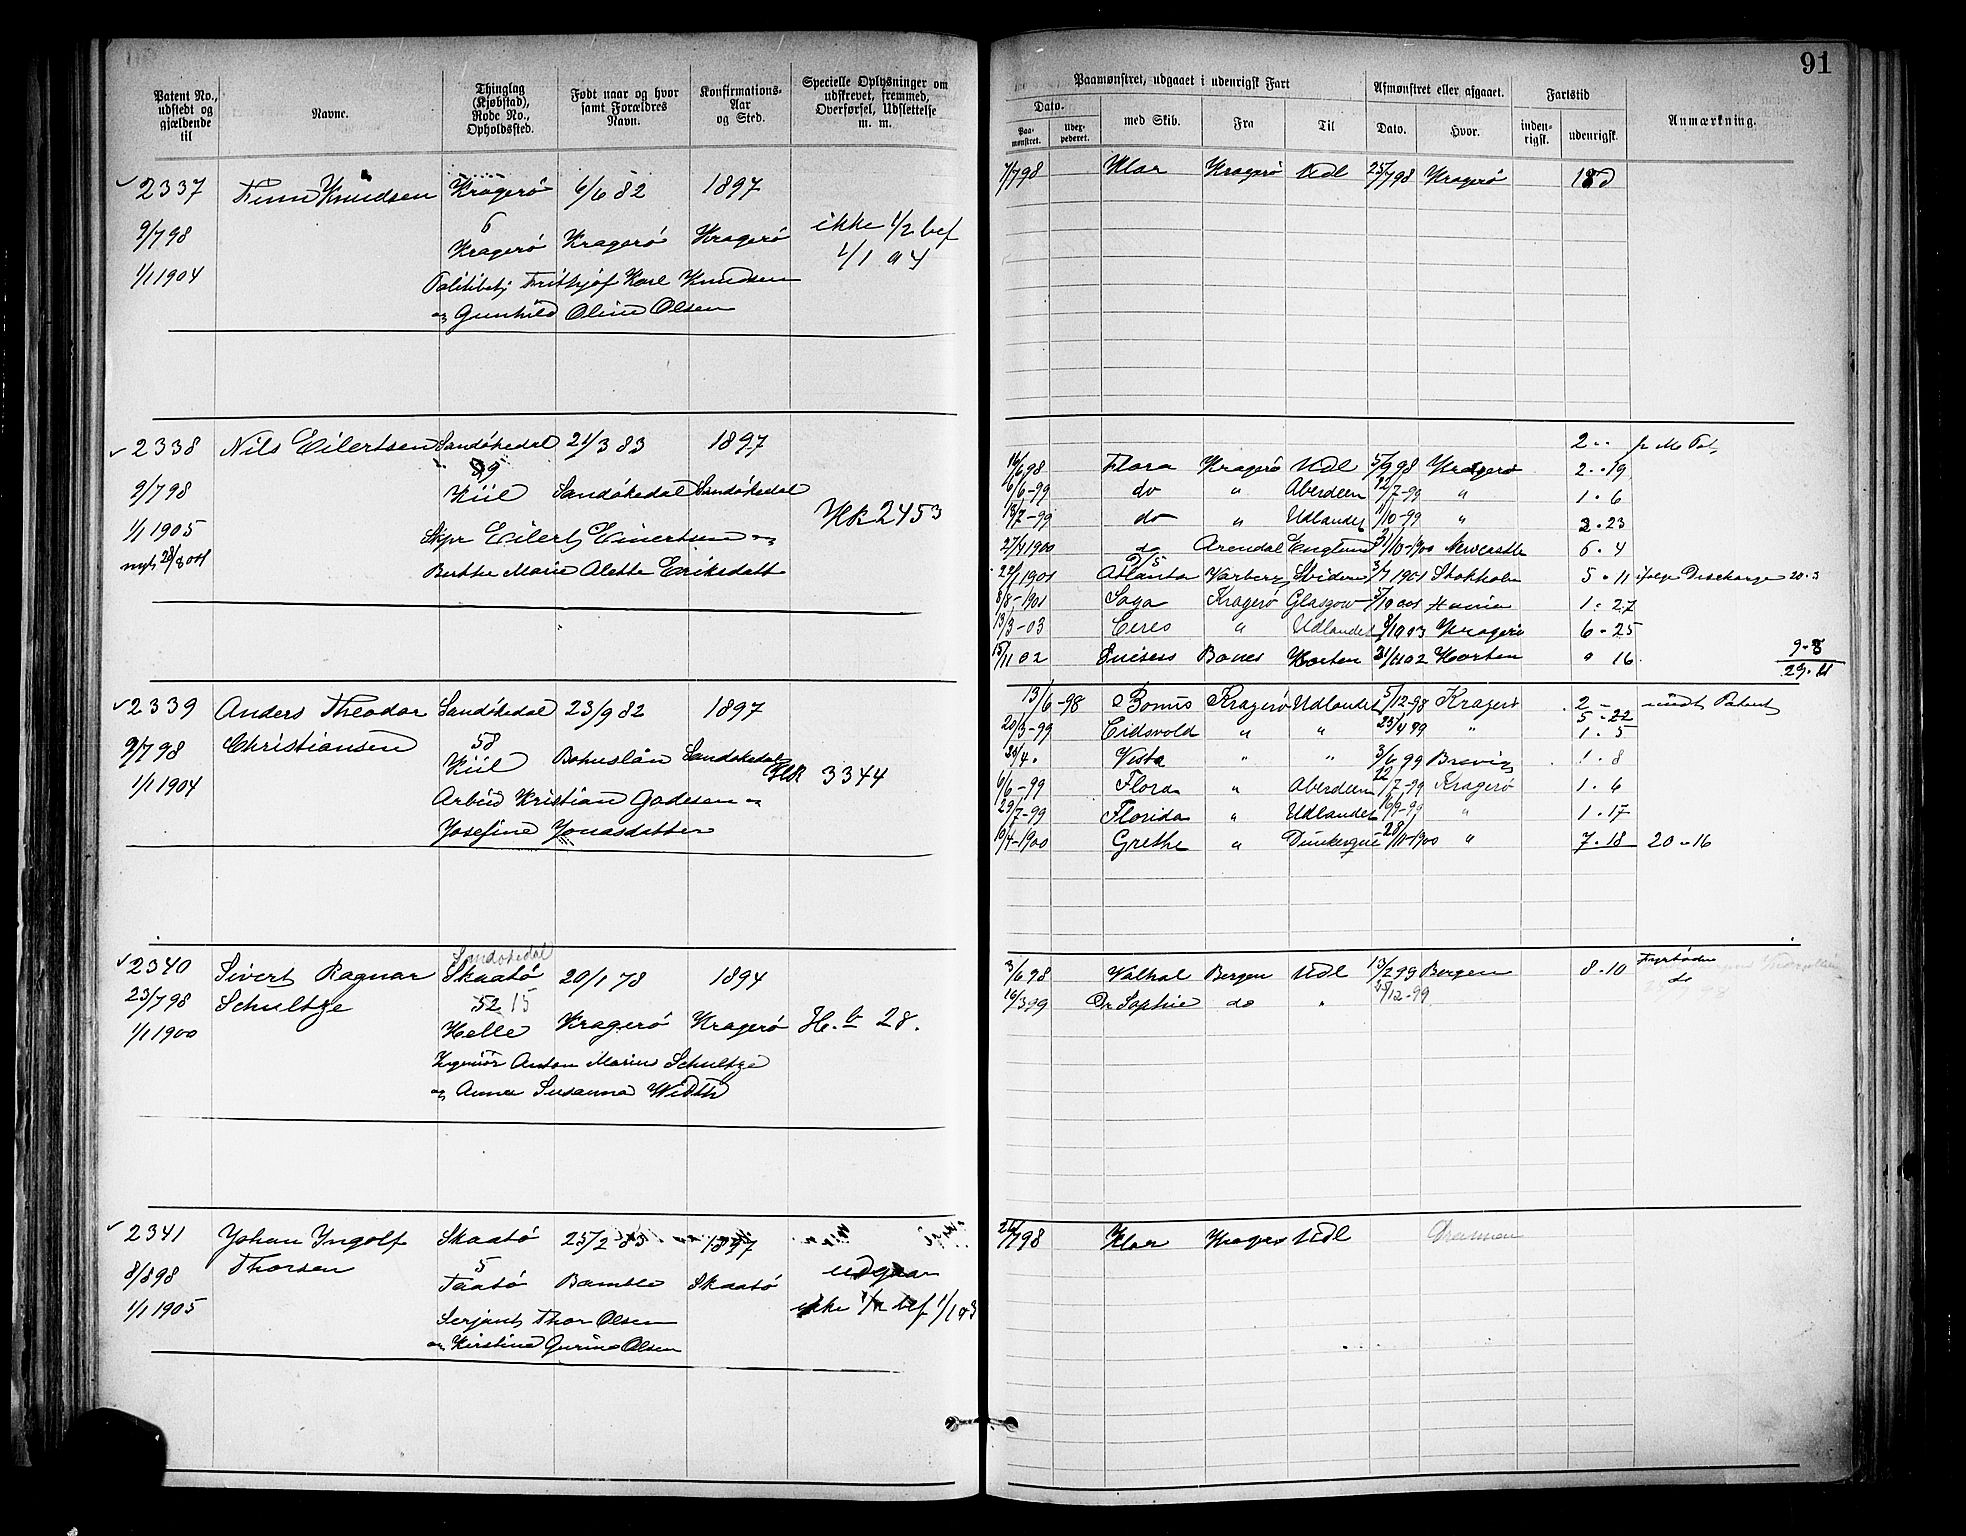 91
Patent No., udstedt og gjældende til
Navne.
Thinglag (Kjøbstad), Rode No., Opholdssted.
Født naar og hvor samt Forældres Navn.
Konfirmations-Aar og Sted.
Specielle Oplysninger om udskrevet, fremmed, Overførsel, Udslettelse m. m.
Paamønstret, udgaaet i udenrigsk Fart
Afmønstret eller afgaaet.
Fartstid
Anmærkning.
Dato.
Paamønstret.
Udexpederet.
med Skib.
Fra
Til
Dato.
Hvor.
indenrigsk.
udenrigsk.
2337 Finn Knudsen Kragerö 6/6 82 1897
6
9/7 98 Kragerö Kragerö Kragerö ikke 1/2 bef
1/1 1904 Politibetj Frithjof Karl Knudsen
og Gunhild Oline Olsen
7/7 98 Klar Kragerö Udl 25/7 98 Kragerö 18 d
2338 Nils Eilertsen Sandökedal 21/3 83 1897
9/7 98 Kiil Sandökedal Sandökedal
HK 2453
1/1 1905 Skpr Eilert Einertsen og
Berthe Marie Alette Eriksdatt
2
16/6 98 Flora Kragerö Udl 5/9 98 Kragerö 2 19
6/6-99 do " Aberdeen 12/7-99 " 1 6
18/7-99 do " Udlandet 11/10-99 " 2 23
27/4 1900 do Arendal England 31/10-1900 Newcastle 6 4
22/1 1901 Atlanta Varberg 3/7 1901 Stokholm 5 11 ifølge Discharge 20-3
8/8-1901 Saga Kragerö Glasgow 1 27
13/3-03 Ceres " Udlandet 8/10 03 Kragerö 6 25
15/11 02 Horten 31/12 02 Horten " 16
9-8
29-11
2339 Anders Theodor Sandökedal 23/9 82 1897
Christiansen 58
9/7 98 Kiil Bohuslän Sandökedal HR 3344
1/1 1904 Arbeid Kristian Gadesen og
Josefine Jonasdatter
13/6-98 Bonus Kragerö Udlandet 5/12-98 Kragerö 2 - indt Patent
5 22
20/3-99 Eidsvold " " 23/4 99 " 1 5
24/4 Vesta " " 3/6 99 Brevig 1 8
6/6-99 Flora " Aberdeen 12/7-99 Kragerö 1 6
29/7-99 Florida " Udlandet 16/9-99 " 1 17
10/4-1900 Grethe " Dunkerque 28/11-1900 " 7 18 20 16
Sandökedal
2340 Sivert Ragnar Skaatö 20/1 78 1894
23/7 98 Schultze 52 15
1/1 1900 Helle Kragerö Kragerö H. b 28.
Ingeniör Anton Marius Schultze
og Anna Susanna Width
3/6 98 Valhal Bergen Udl 13/2 99 Bergen 8 10 Fyrbøder
16/3 99 Dr Sophie do " 28/12-99 do
2341 Johan Ingolf Skaatö 25/2 83 1897
Thorsen 5
8/8 98 Taatö Bamble Skaatö udgaar
1/1 1905 ikke 1/2 bef 1/1 03
Serjant Thor Olsen
og Kirstine Gurine Olsen
26/7 98 Klar Kragerö Udl Drammen